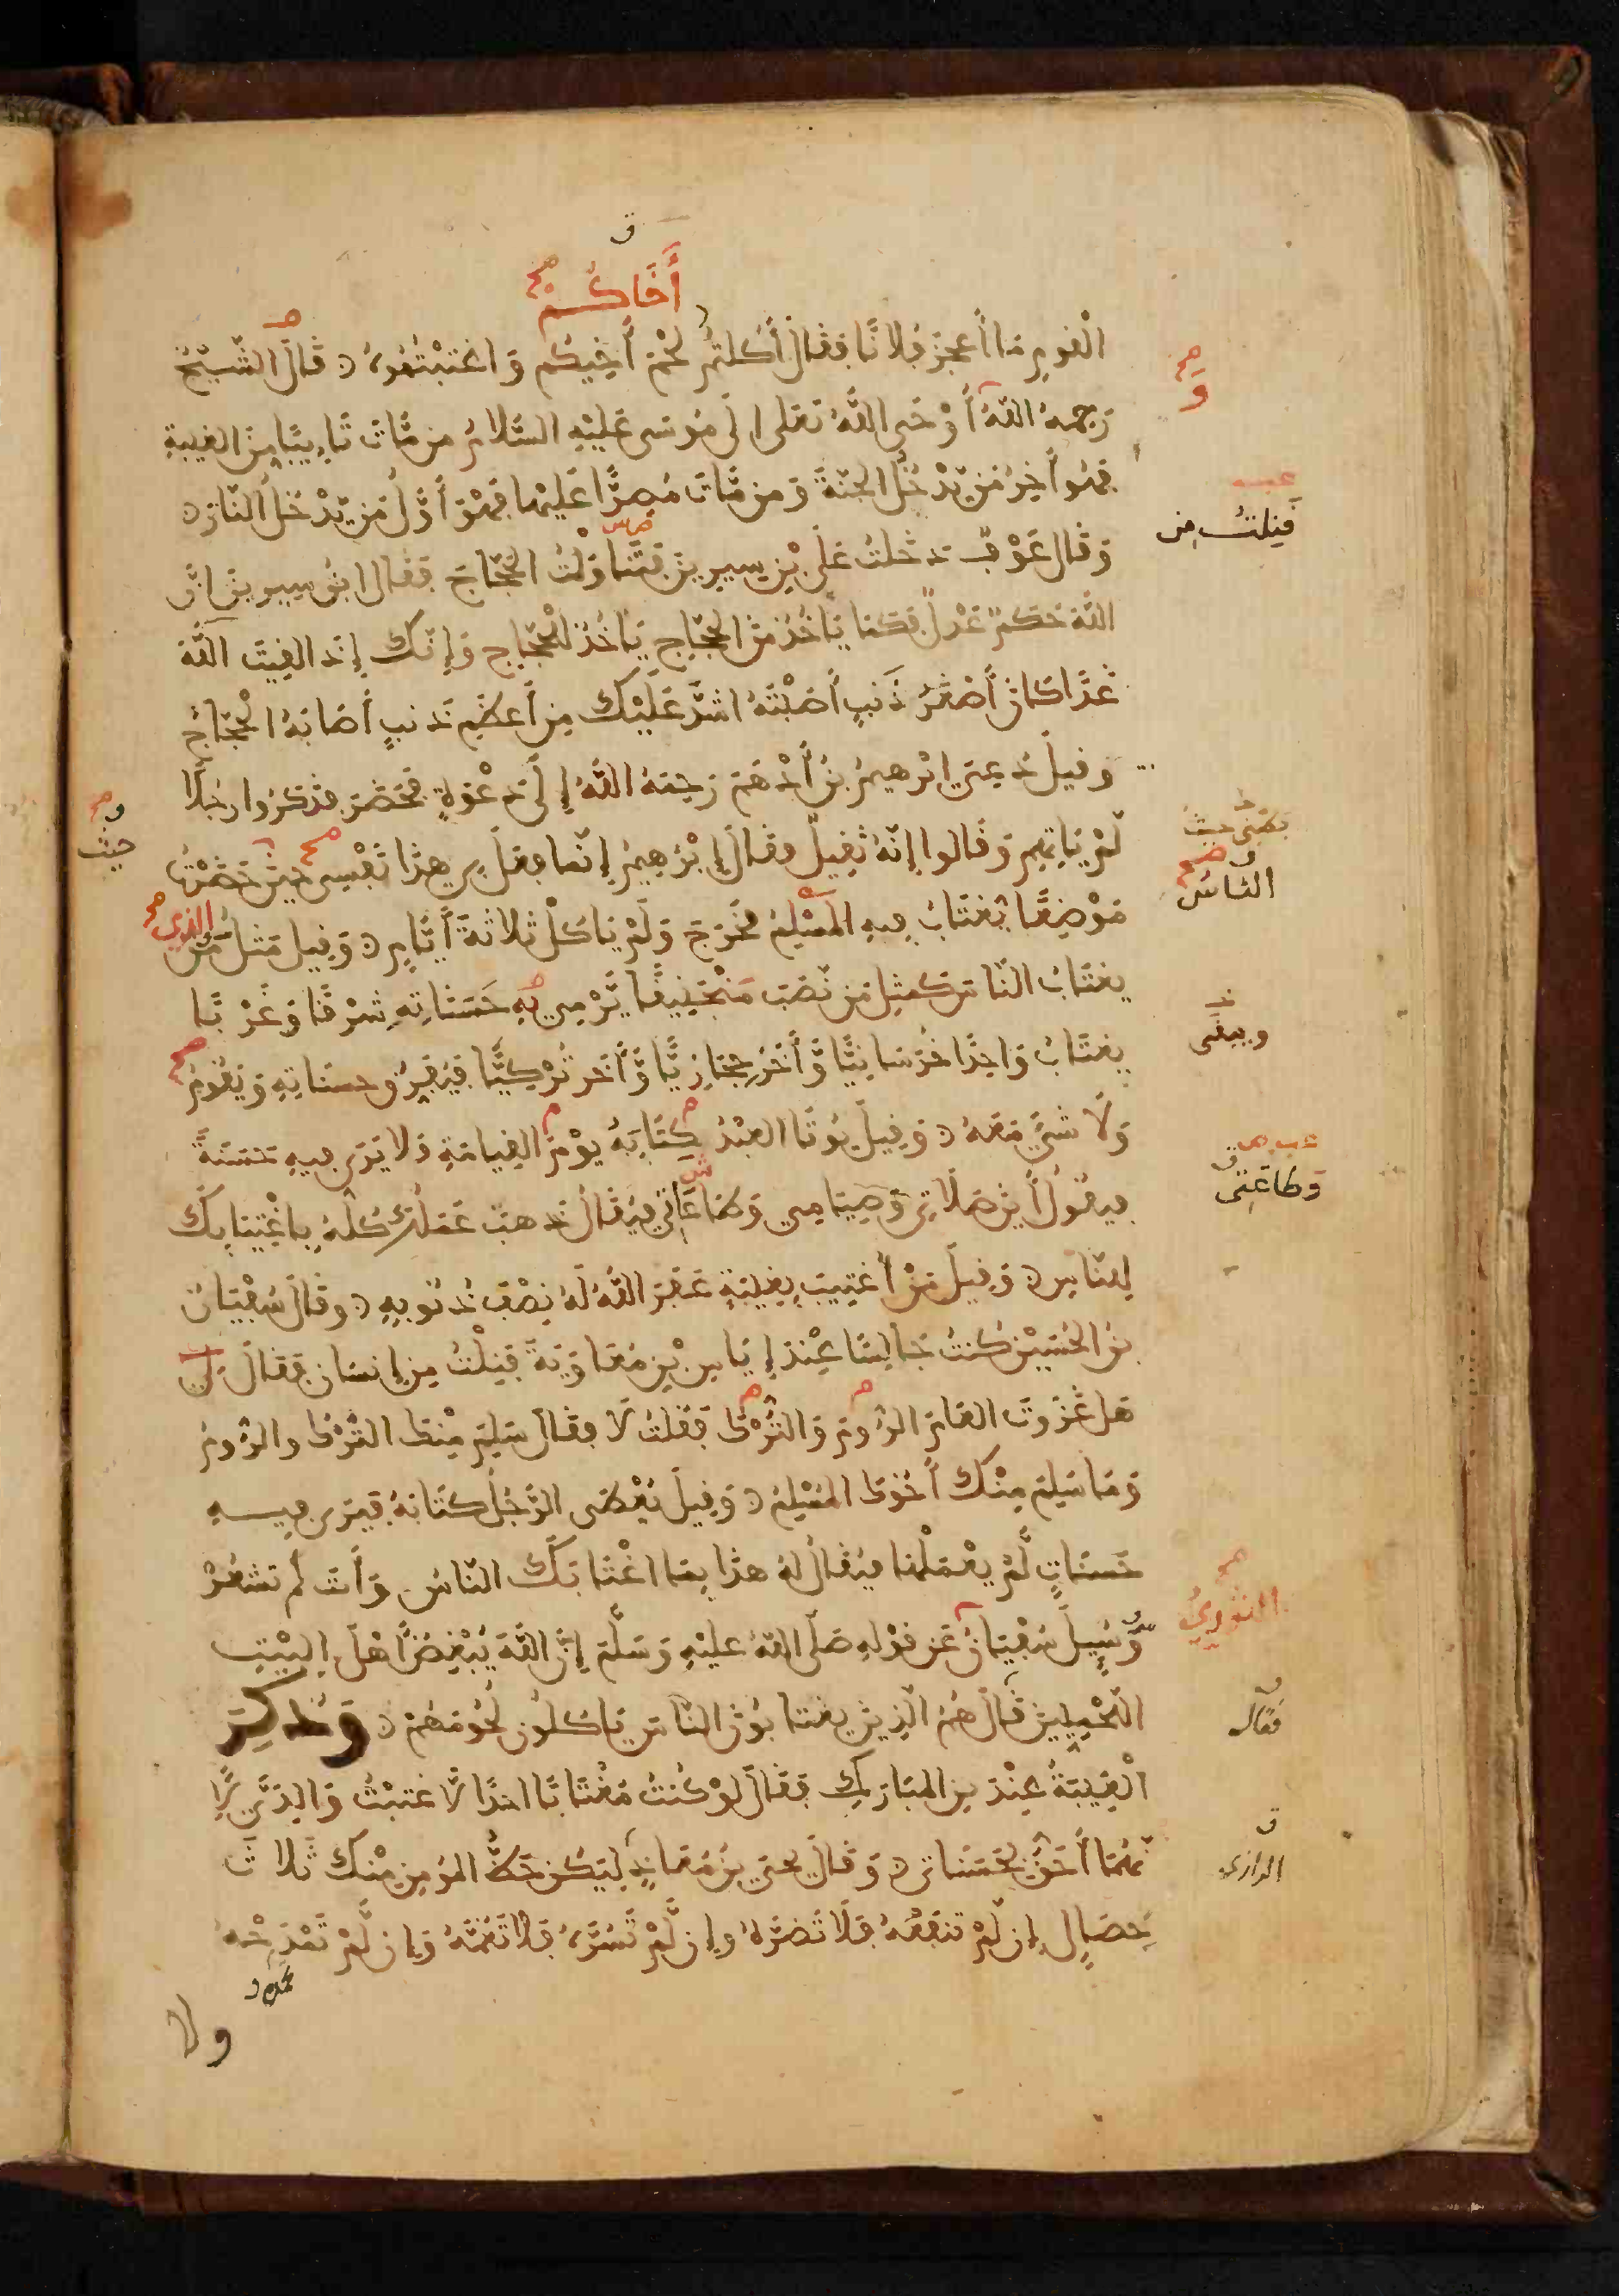 أَخَاكُمْ
القوم ما أعجز فلانا فقال أكلتم لحم أخيكم واغتبتموه قال الشيخ
رحمه الله أوحى الله تعلى إلى موسى عليه السلام من مات تايبا من الغيبة
فهو أخر من يدخل الجنة ومن مات مصرا عليها فهو أول من يدخل النار
وقال عوف دخلت على بن سيرين فتناولت الحجاج فقال ابن سيرين ان
الله حكم عدل فكما ياخذ من الحجاج ياخذ للحجاج وإنك إذ الفيت الله
غدا كان أصغر ذنب أصبته اشد عليك من أعظم ذنب أصابه الحجاج
وقيل دعي إبرهيم بن أدهم رحمه الله إلى دعوة فحضر فذكروا رجلا
لم ياتهم وقالوا إنه ثقيل فقال إبرهيم إنما فعل بي هذا نفسي حين حضرت
موضعا يغتاب فيه المسلم فخرج ولم ياكل ثلاثة أيام وقيل مثل من الذي
يغتاب الناس كمثل من نصب منجنيقا يرمي به حسناته شرقا وغربا
يغتاب واحدا خرسانيا وأخر حجازيا وأخر تركيا فيفرق حسناته ويقوم
ولا شيء معه وقيل يوتا العبد كتابه يوم القيامة فلا يرى فيه حسنة
فيقول أين صلاتي وصيامي وطاعاتي فيقال ذهب عملك كله باغتيابك
للناس وقيل من أغتيب بغيبة غفر الله له نصف ذنوبه وقال سفيان
بن الحسين كنت جالسا عند إياس بن معاوية فنلت من إنسان فقال لي
هل غزوت العام الروم والترك فقلت لا فقال سلم منك الترك والروم
وما سلم منك أخوك المسلم وقيل يعطى الرجل كتابه فيرى فيه
حسنات لم يعملها فيقال له هذا بما اغتابك الناس وأنت لم تشعر
وسيل سفيان عن قوله صلى الله عليه وسلم إن الله يبغض أهل البيت
اللحميين قال هم الذين يغتابون الناس ياكلون لحومهم وذكر
الغيبة عند بن المبارك فقال لو كنت مغتابا احدا لاغتبت والدي لا
نهما أحق بحسناتي وقال يحيى بن معاذ ليكن حظ المومن منك ثلاث
خصال إن لم تنفعه فلا تضره وإن لم تسره فلا تغمه وإن لم تمدحه
ولا
فنلت من
الناس
حيث
ويبقى
وطاعتي
الثوري
فقال
الرازي